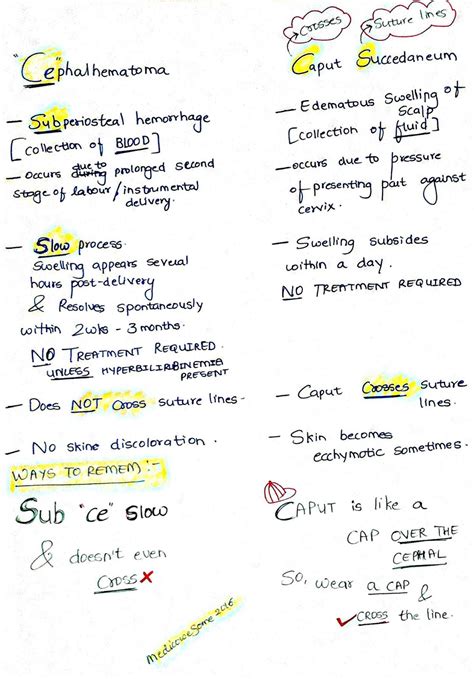 "Ce"phalhematoma
— Subperiosteal hemorrhage
[collection of BLOOD]
— occurs due to during prolonged second
stage of labour/instrumental
delivery.
— Slow process.
Swelling appears several
hours post-delivery
& Resolves spontaneously
within 2wks - 3 months.
NO TREATMENT REQUIRED.
UNLESS HYPERBILIRBINEMIA
PRESENT
— Does NOT cross suture lines.
— No skine discoloration.
WAYS TO REMEM :-
Sub "ce" slow
& doesn't even
cross X
Crosses
Suture lines
Caput Succedaneum
— Edematous swelling of
scalp
[collection of fluid]
— occurs due to pressure
of presenting part against
cervix.
— Swelling subsides
within a day.
NO TREATMENT REQUIRED
— Caput Crosses suture
lines.
— Skin becomes
ecchymotic sometimes.
CAPUT is like a
CAP OVER THE
CEPHAL
SO, wear a CAP &
✓CROSS the line.
Medicowesome 2016